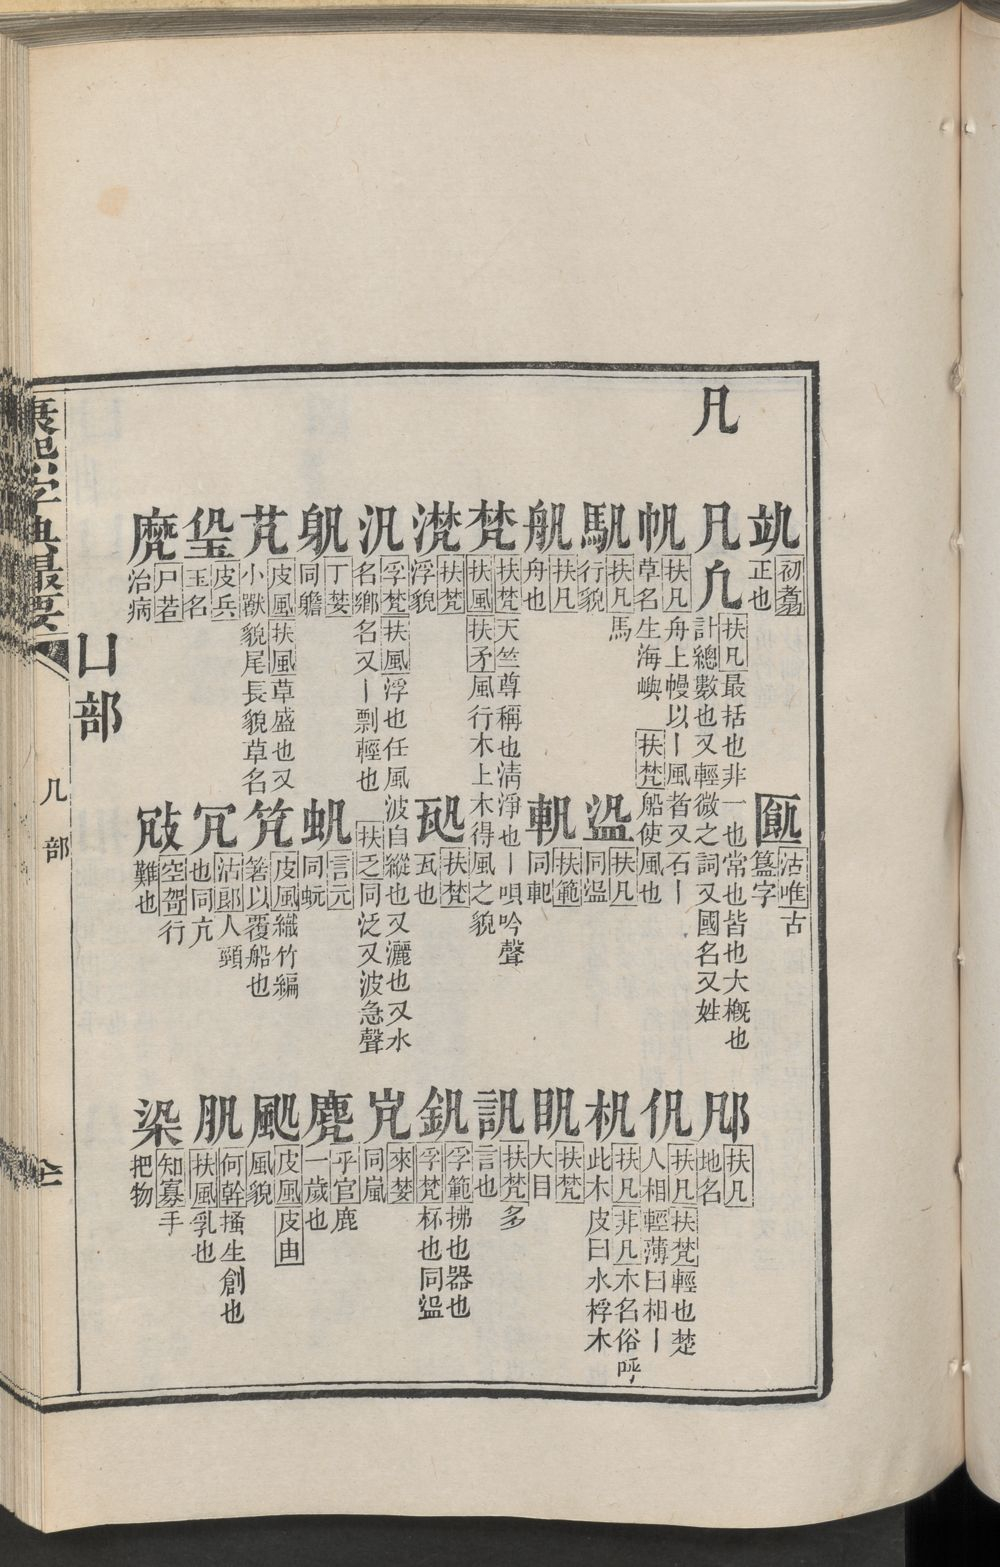 凡
初𦒱正也
匭 沽唯古簋字
凡凢 扶凡最括也非一也常也皆也大槪也計總數也又輕微之詞又國名又姓
扶凡地名
帆 扶凡舟上幔以丨風者又石丨草名生海嶼扶梵船使風也
仉 扶凡扶梵輕也楚人相輕薄曰相丨
扶凡馬行貌
扶凡同㿽
机 扶凡非凡木名俗呼此木皮曰水桴木
扶凡舟也
軓 扶範同軛
扶梵大目
梵 扶梵天竺尊稱也淸淨也丨唄吟聲扶風扶矛風行木上木得風之貌
扶梵多言也
扶梵浮貌
扶梵瓦也
釩 孚範拂也器也孚梵杯也同㿽
汎 孚梵扶風浮也任風波自縱也又灑也又水名鄉名又丨剽輕也扶乏同泛又波急聲
來婪同嵐
丁婪同軉
言元同蚖
乎官鹿一歲也
芃 皮風扶風草盛也又小獸貌尾長貌草名
笂 皮風織竹編箬以覆船也
皮風皮由風貌
皮兵玉名
冗 沽郞人頸也同亢
肌 何幹搔生創也扶風乳也
尸若治病
空匌行難也
知寡手把物
康熙字典撮要
凵部
几部